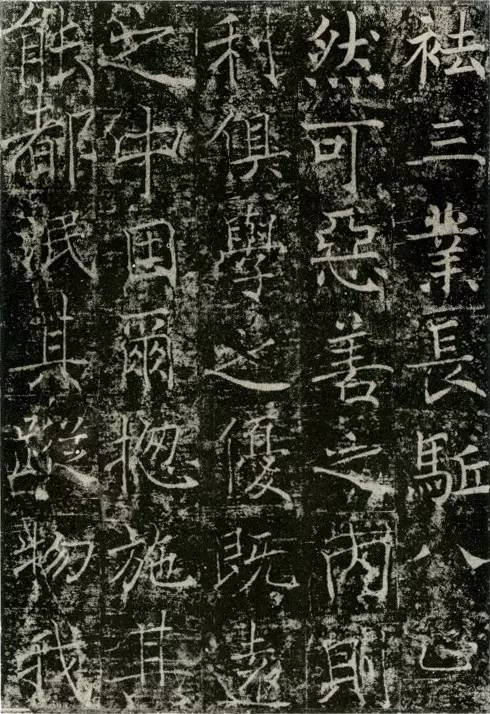 袪三業長駈八正
然可惡善之內則
利俱學之優既遠
之中因爾揔施其
能都泯其蹤物我